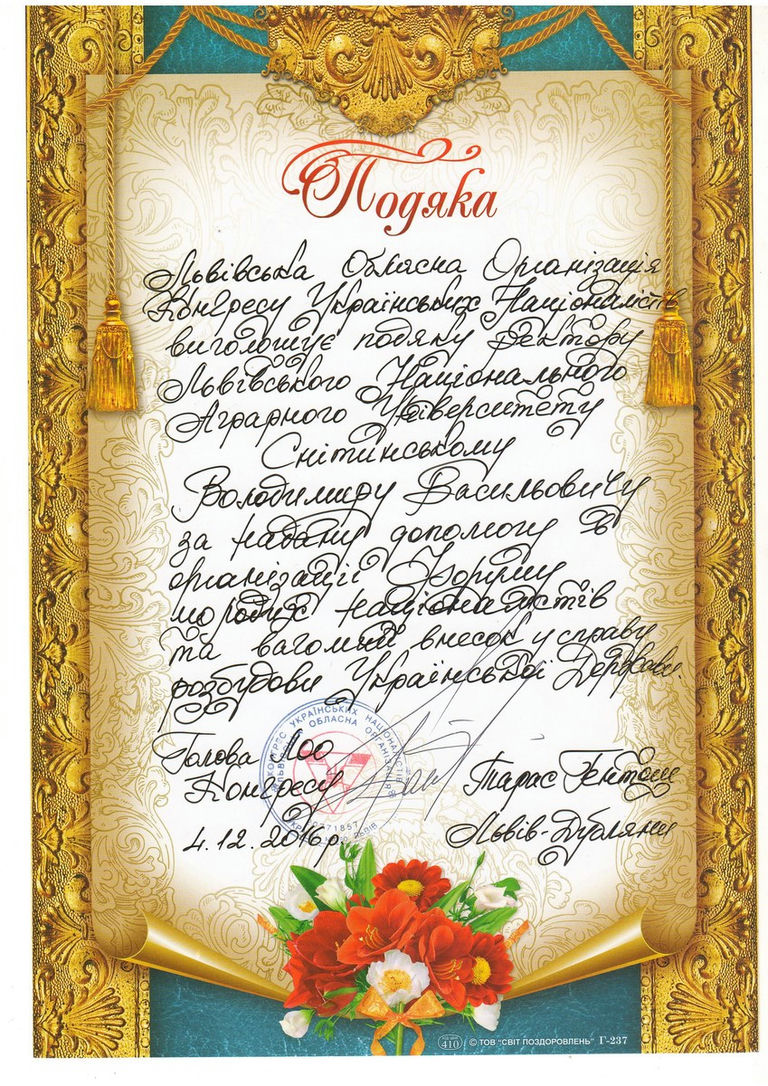 Подяка
Львівська Обласна Організація
Конгресу Українських Націоналістів
виголошує подяку ректору
Львівського Національного
Аграрного Університету
Снітинському
Володимиру Васильовичу
за надану допомогу в
організації Форуму
молодих націоналістів
та вагомий внесок у справу
розбудови Української Держави.
КОНГРЕС УКРАЇНСЬКИХ НАЦІОНАЛІСТІВ
ЛЬВІВСЬКА ОБЛАСНА ОРГАНІЗАЦІЯ
Голова ЛОО
Конгресу
Тарас
4.12.2016р.
Львів-Дубляни
410 © ТОВ "СВІТ ПОЗДОРОВЛЕНЬ" Г-237